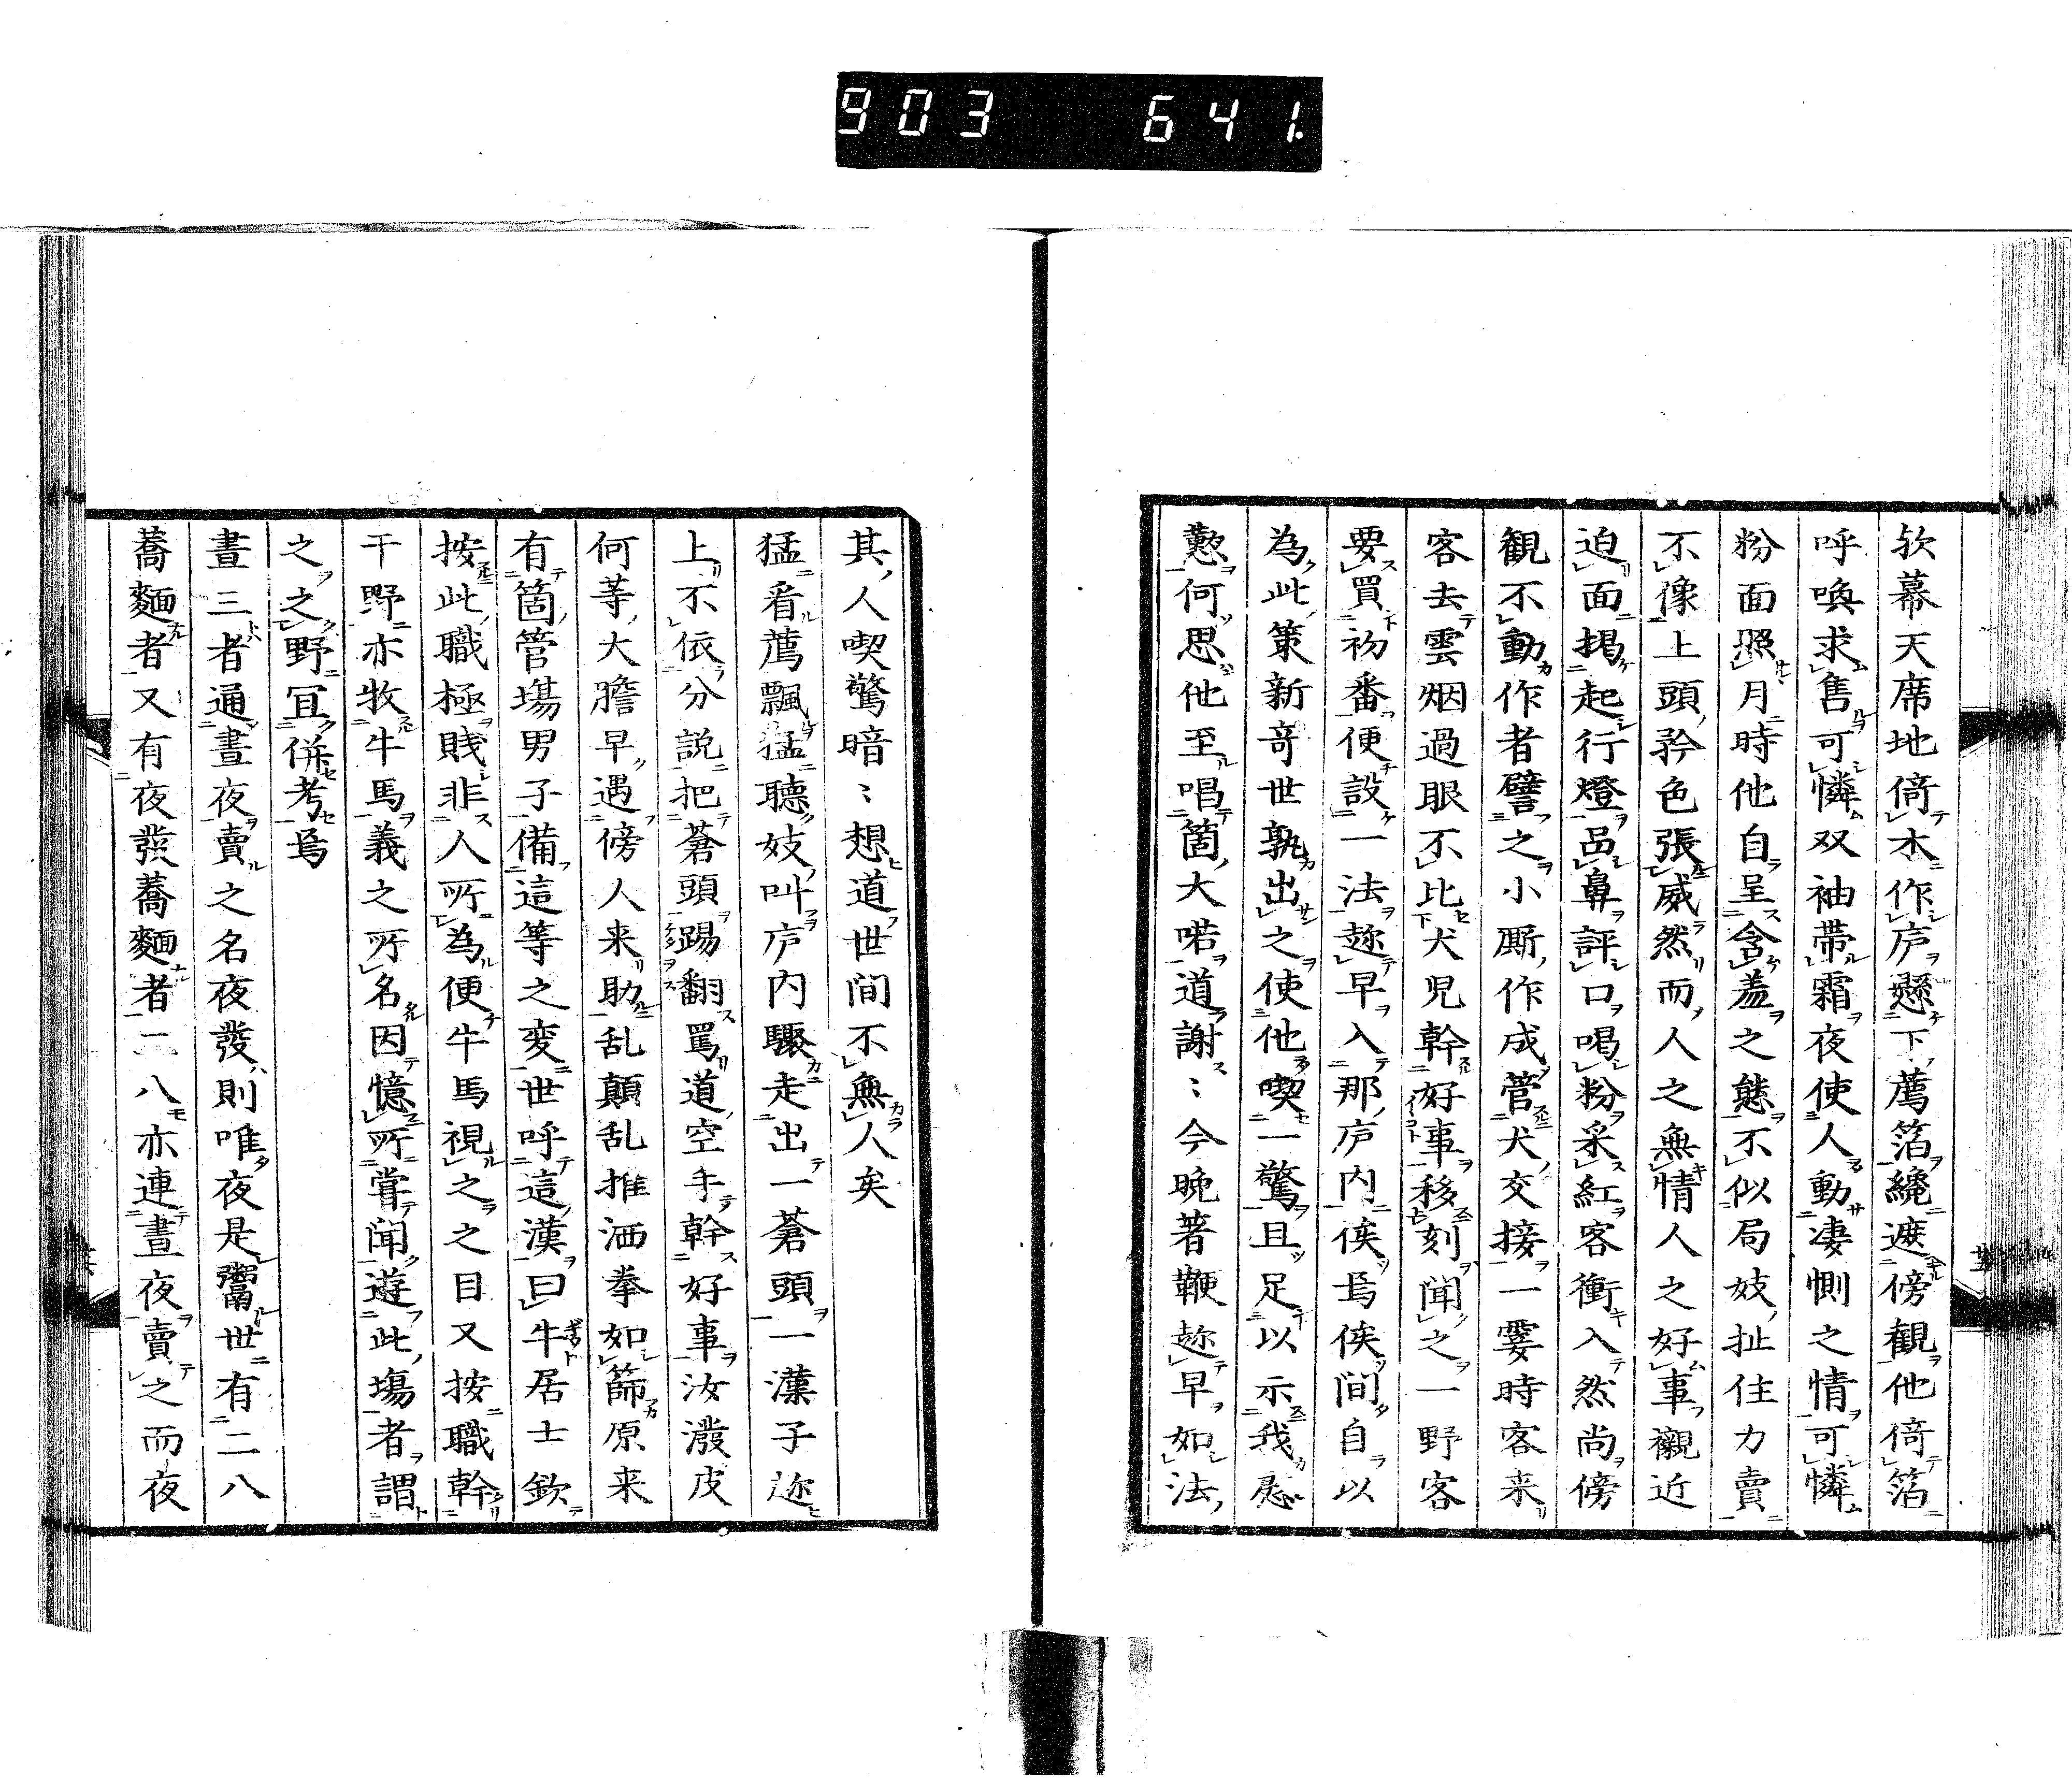 903 641.
欤幕天席地倚木作庐懸下薦箔繞遮傍観他倚箔
呼喚求售可憐双袖帯霜夜使人動凄惻之情可憐
粉面照月時他自呈含羞之態不似局妓扯住力賣
不像上頭矜色張威然而人之無情人之好事襯近
迫面掲起行燈品鼻評口喝粉采紅客衝入然尚傍
観不動作者譬之小厮作成管犬交接一霎時客来
客去雲烟過眼不比犬児幹好事移刻聞之一野客
要買初番便設一法趂早入那庐内俟焉俟間自以
為此策新竒世孰出之使他喫一驚且足以示我慇
懃何思他至唱箇大喏道謝〻今晩著鞭趂早如法
其人喫驚暗〻想道世間不無人矣
猛看薦飄猛聴妓叫庐内驟走出一蒼頭一漢子迯
上不依分説把蒼頭踢翻罵道空手幹好事汝潑皮
何等大膽早遇傍人来助乱顛乱推洒拳如篩原来
有箇管場男子備這等之変世呼這漢曰牛居士欽
按此職極賤非人所為便牛馬視之之目又按職幹
干野亦牧牛馬義之所名因憶所甞聞遊此場者謂
之之野冝併考焉
晝三者通晝夜賣之名夜發則唯夜是鬻世有二八
蕎麵者又有夜發蕎麵者二八亦連晝夜賣之而夜